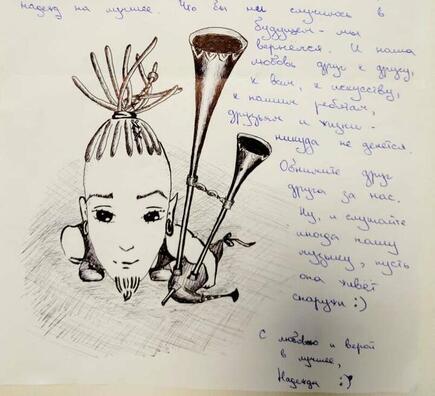 надежд на лучшее. Что бы ни случилось в
будущем - мы
вернёмся. И наша
любовь друг к другу,
к вам, к искусству,
к нашим ребятам,
друзьям и жизни -
никуда не денется.
Обнимите друг
друга за нас.
Ну, и слушайте
иногда нашу
музыку, пусть
она живёт
снаружи :)
С любовью и верой
в лучшее,
Надежда :)